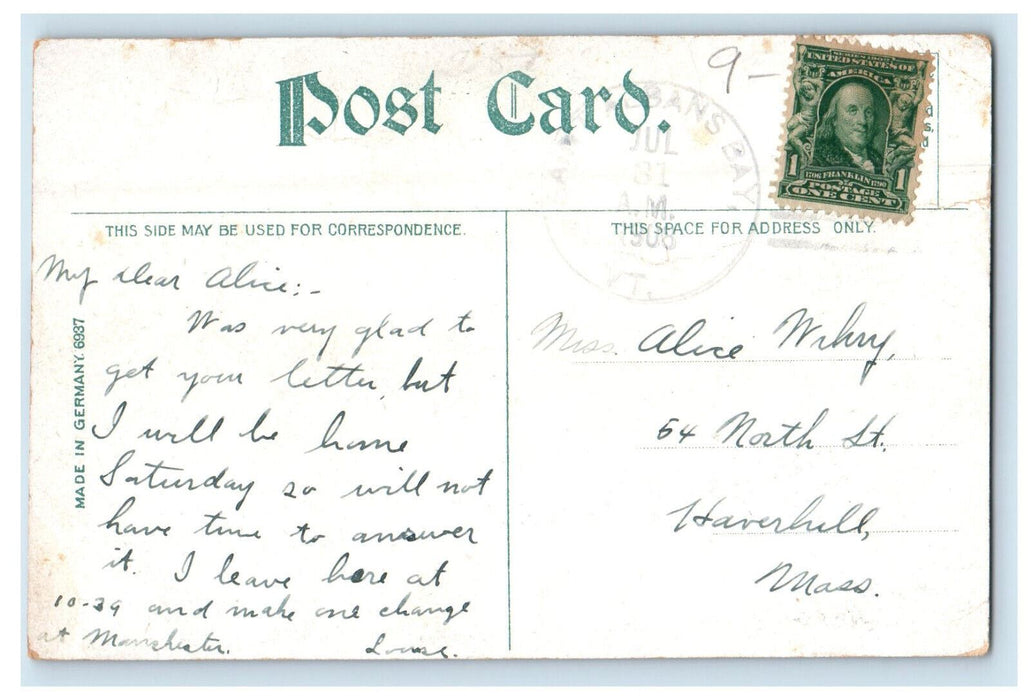 Post Card.
9-
SERIES 1902
UNITED STATES OF
AMERICA
1 1
1706 FRANKLIN 1790
POSTAGE
ONE CENT
BANS BAY,
JUL
31
A.M.
190
VT.
THIS SIDE MAY BE USED FOR CORRESPONDENCE.
THIS SPACE FOR ADDRESS ONLY.
MADE IN GERMANY. 6937
My dear Alice:-
Was very glad to
get your letter, but
I will be home
Saturday so will not
have time to answer
it. I leave here at
10-39 and make one change
at Manchester. Louise.
Miss Alice
54 North St.
Haverhill,
Mass.